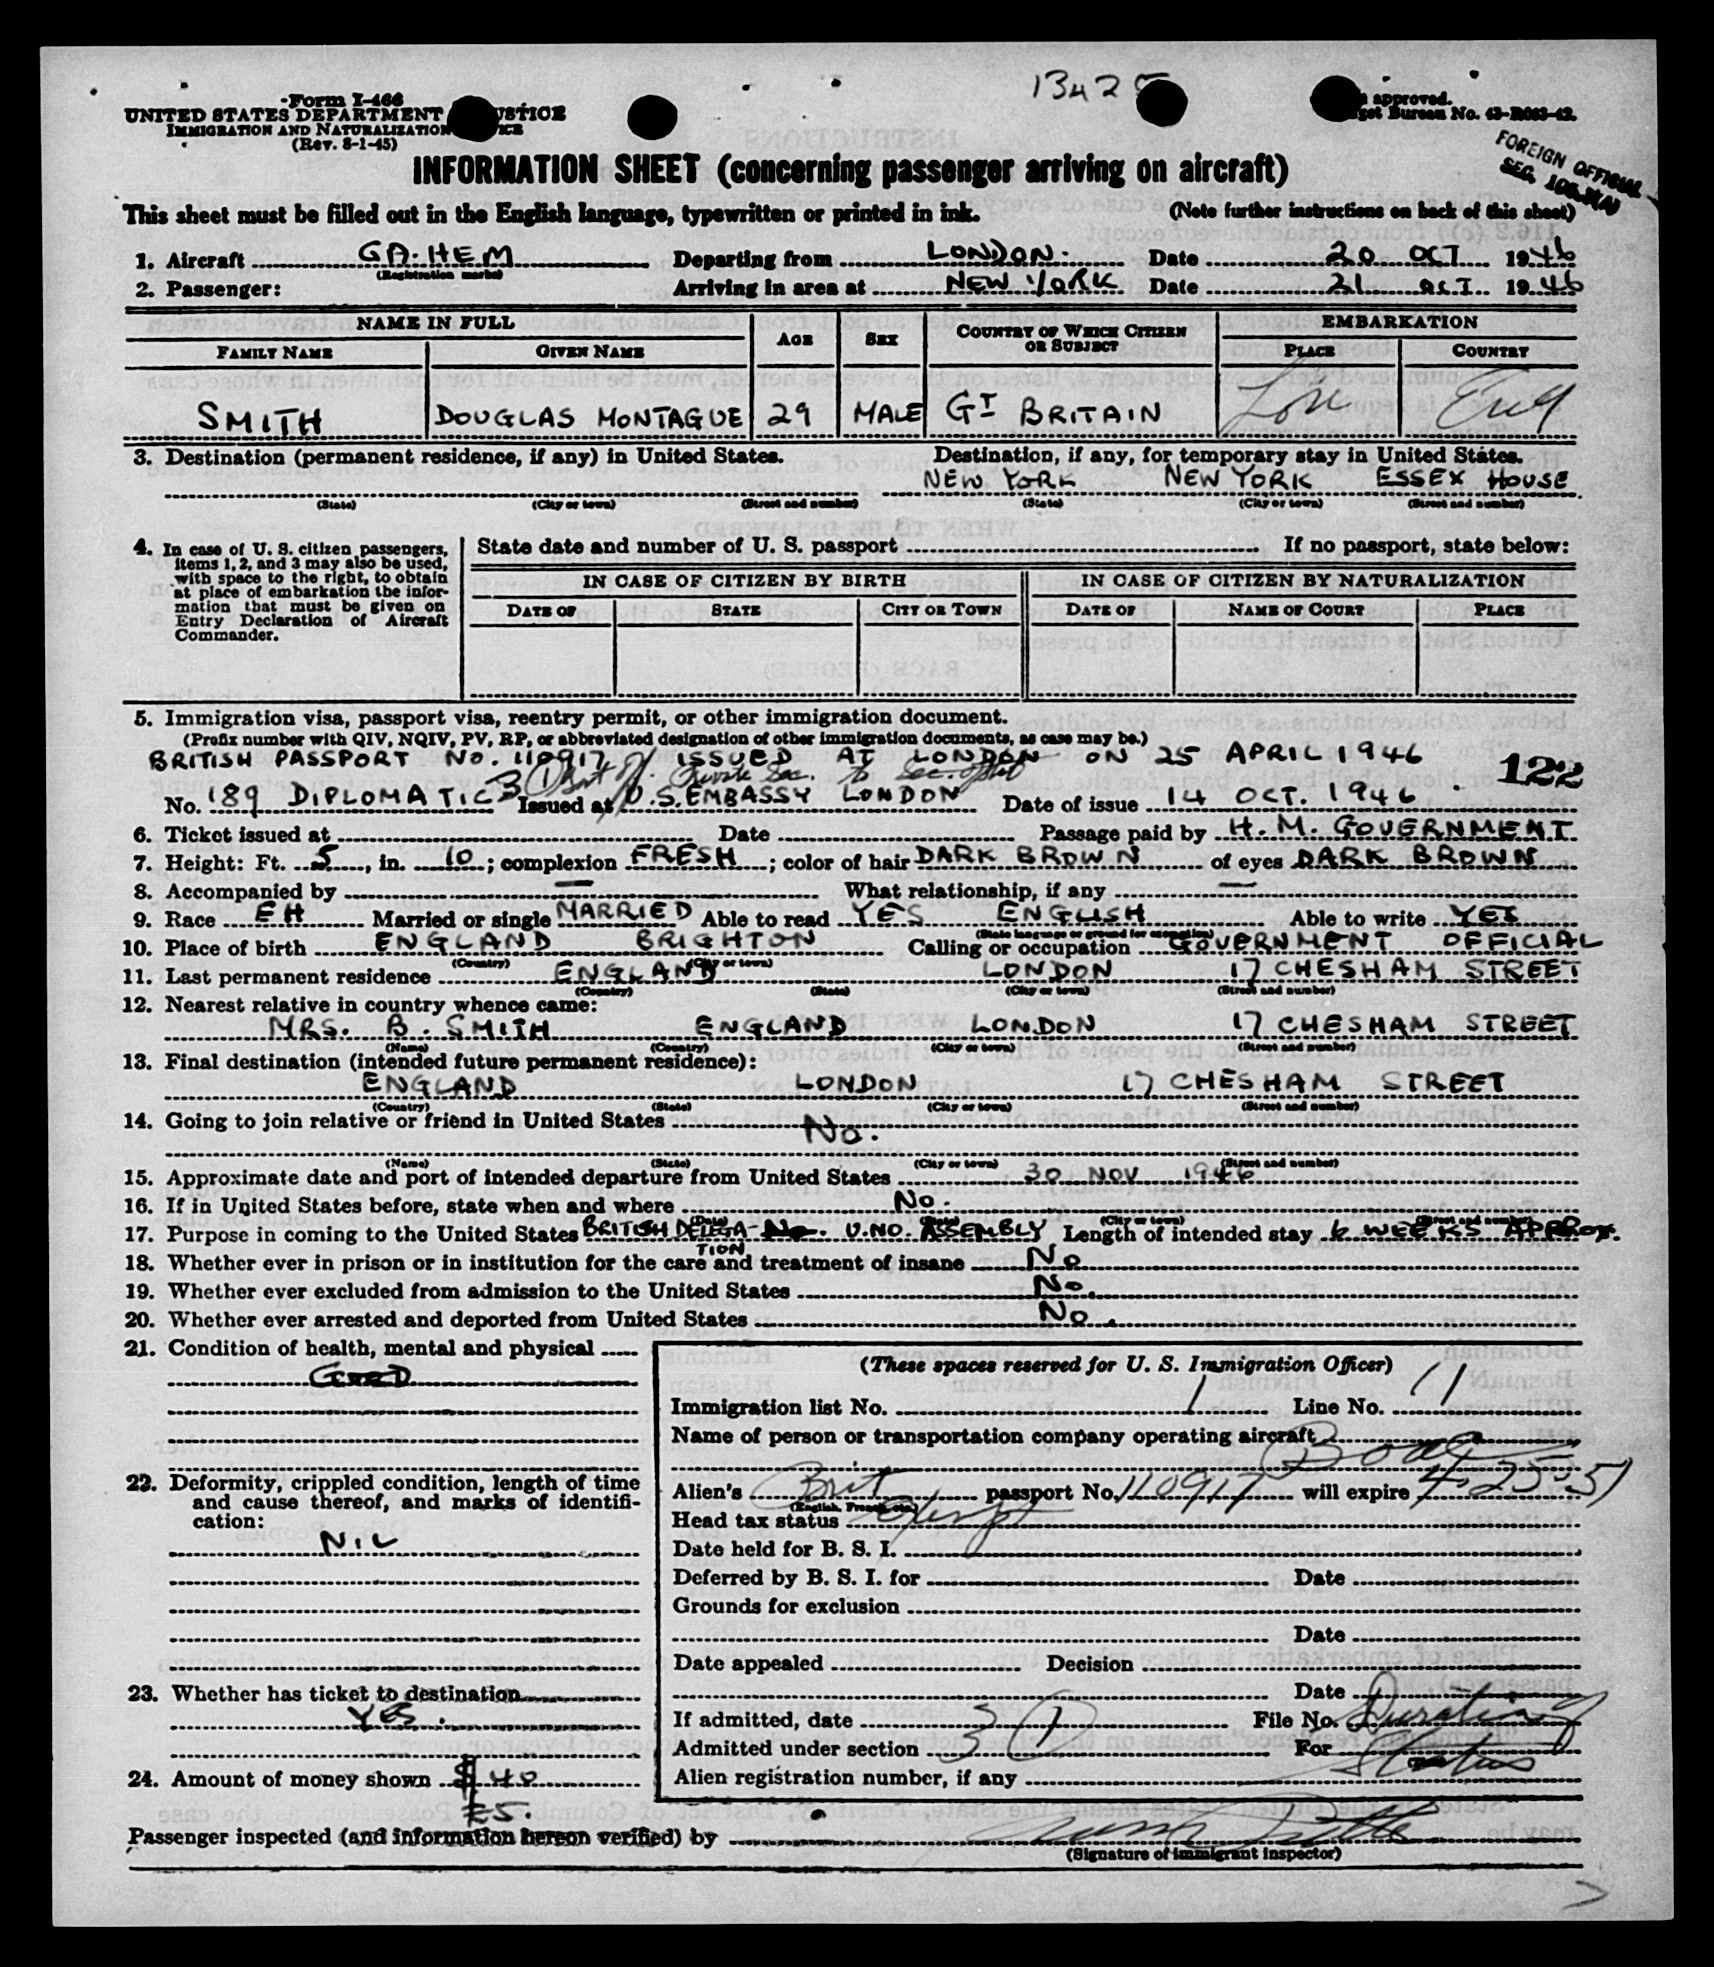 13425
Form I-466
UNITED STATES DEPARTMENT JUSTICE
IMMIGRATION AND NATURALIZATION
(Rev. 8-1-45)
approved.
Budget Bureau No. 43-R063-42.
FOREIGN OFFICIAL
SEC.
INFORMATION SHEET (concerning passenger arriving on aircraft)
This sheet must be filled out in the English language, typewritten or printed in ink. (Note further instructions on back of this sheet)
1. Aircraft GA-HEM Departing from LONDON. Date 20 OCT 1946
(Registration marks)
2. Passenger: Arriving in area at NEW YORK Date 21 OCT 1946
NAME IN FULL AGE SEX COUNTRY OF WHICH CITIZEN OR SUBJECT EMBARKATION
FAMILY NAME GIVEN NAME PLACE COUNTRY
SMITH DOUGLAS MONTAGUE 29 MALE GT BRITAIN Lon Eng
3. Destination (permanent residence, if any) in United States. Destination, if any, for temporary stay in United States.
NEW YORK NEW YORK ESSEX HOUSE
(State) (City or town) (Street and number) (State) (City or town) (Street and number)
4. In case of U. S. citizen passengers, items 1, 2, and 3 may also be used, with space to the right, to obtain at place of embarkation the information that must be given on Entry Declaration of Aircraft Commander.
State date and number of U. S. passport If no passport, state below:
IN CASE OF CITIZEN BY BIRTH IN CASE OF CITIZEN BY NATURALIZATION
DATE OF STATE CITY OR TOWN DATE OF NAME OF COURT PLACE
5. Immigration visa, passport visa, reentry permit, or other immigration document.
(Prefix number with QIV, NQIV, PV, RP, or abbreviated designation of other immigration documents, as case may be.)
BRITISH PASSPORT No. 110917 ISSUED AT LONDON ON 25 APRIL 1946
122
Private Sec. to Sec. of
No. 189 DIPLOMATIC 3(1) Issued at U.S. EMBASSY LONDON Date of issue 14 OCT. 1946
6. Ticket issued at Date Passage paid by H. M. GOVERNMENT
7. Height: Ft. 5, in. 10; complexion FRESH; color of hair DARK BROWN of eyes DARK BROWN
8. Accompanied by — What relationship, if any —
9. Race EH Married or single MARRIED Able to read YES ENGLISH Able to write YES
(State language or ground for exemption)
10. Place of birth ENGLAND BRIGHTON Calling or occupation GOVERNMENT OFFICIAL
(Country) (City or town)
11. Last permanent residence ENGLAND LONDON 17 CHESHAM STREET
(Country) (State) (City or town) (Street and number)
12. Nearest relative in country whence came:
MRS. B. SMITH ENGLAND LONDON 17 CHESHAM STREET
(Name) (Country) (City or town) (Street and number)
13. Final destination (intended future permanent residence):
ENGLAND LONDON 17 CHESHAM STREET
(Country) (State) (City or town) (Street and number)
14. Going to join relative or friend in United States No.
(Name) (State) (City or town) (Street and number)
15. Approximate date and port of intended departure from United States 30 NOV 1946
16. If in United States before, state when and where No.
(Date) (State) (City or town) (Street and number)
17. Purpose in coming to the United States BRITISH DELEGA- No. U.N.O. ASSEMBLY Length of intended stay 6 WEEKS APPROX.
TION
18. Whether ever in prison or in institution for the care and treatment of insane No
19. Whether ever excluded from admission to the United States No.
20. Whether ever arrested and deported from United States No.
21. Condition of health, mental and physical
GOOD
22. Deformity, crippled condition, length of time and cause thereof, and marks of identification:
NIL
23. Whether has ticket to destination
YES.
24. Amount of money shown $40
£5.
(These spaces reserved for U. S. Immigration Officer)
Immigration list No. 1 Line No. 11
Name of person or transportation company operating aircraft
Boac
Alien's Brit passport No. 110917 will expire 4-25-51
(English, French, etc.)
Head tax status Exempt
Date held for B. S. I.
Deferred by B. S. I. for Date
Grounds for exclusion
Date
Date appealed Decision
Date
If admitted, date File No. Duration of
Admitted under section 3(1) For Status
Alien registration number, if any
Passenger inspected (and information hereon verified) by
(Signature of immigrant inspector)